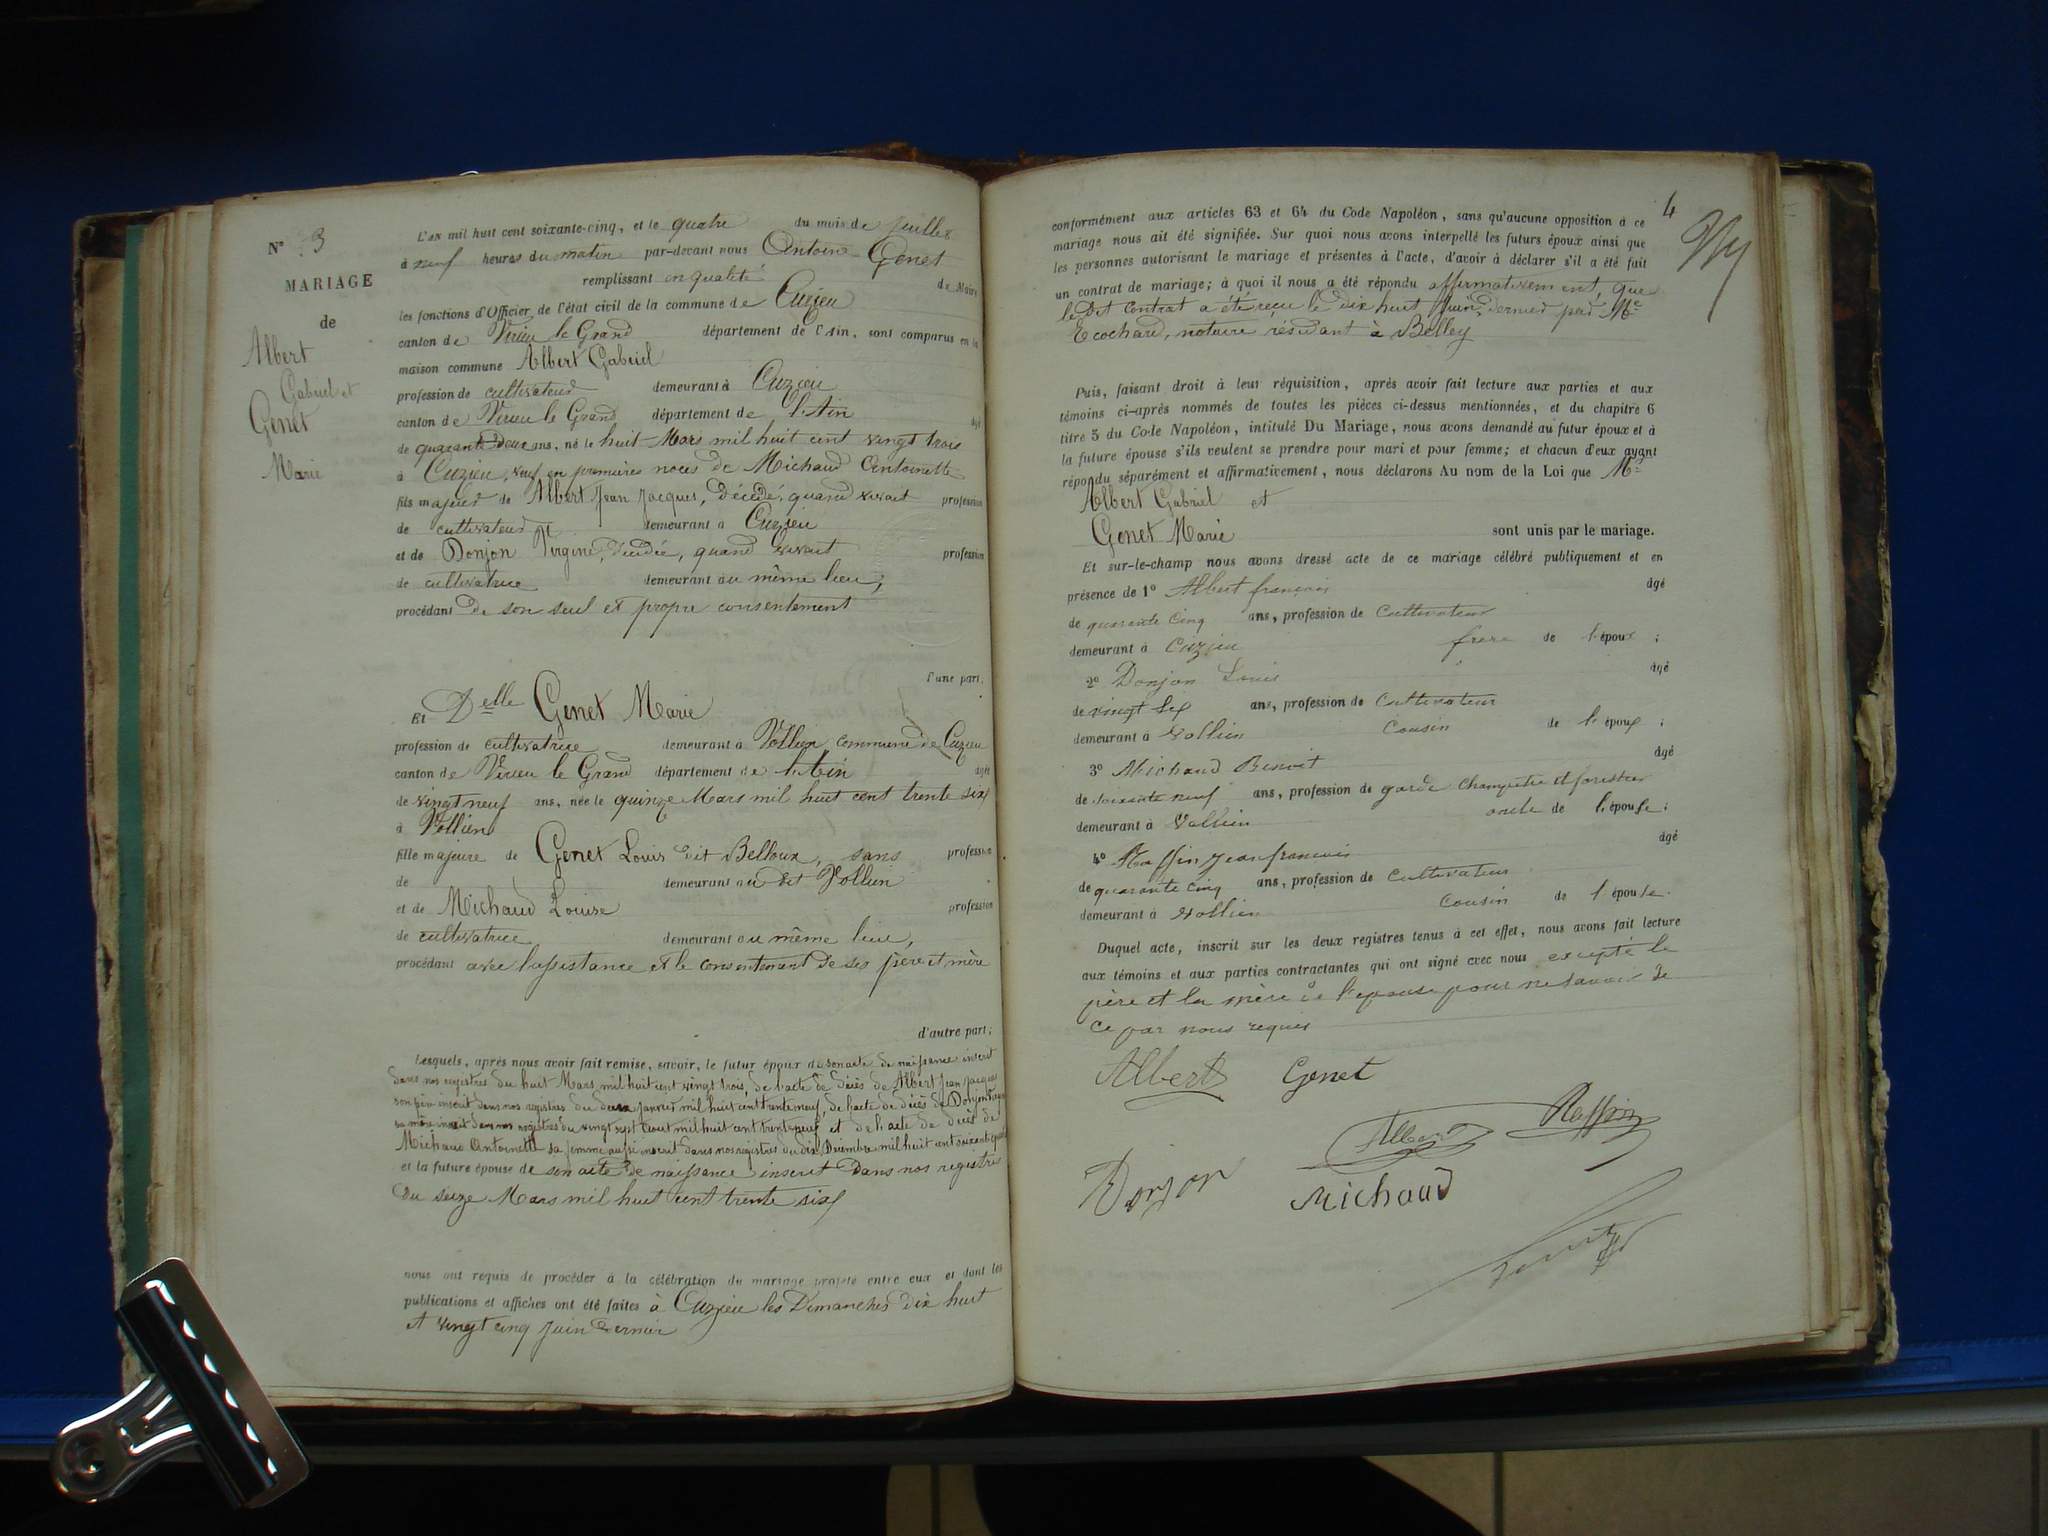 N° 3
MARIAGE
de
Albert
Gabriel et
Genet
Marie
L'AN mil huit cent soixante-cinq, et le quatre du mois de juillet
à neuf heures du matin par-devant nous Antoine Genet
remplissant en qualité de Maire
les fonctions d'Officier de l'état civil de la commune de Cuzieu
canton de Virieu le Grand département de l'Ain, sont comparus en la
maison commune Albert Gabriel
profession de cultivateur demeurant à Cuzieu
canton de Virieu le Grand département de l'Ain âgé
de quarante deux ans, né le huit Mars mil huit cent vingt trois
à Cuzieu, veuf en premières noces de Michaud Antoinette
fils majeur de Albert Jean Jacques, décédé, quand vivait profession
de cultivateur demeurant à Cuzieu
et de Donjon Virginie, décédée, quand vivait profession
de cultivatrice demeurant au même lieu,
procédant de son seul et propre consentement
l'une part;
Et Delle Genet Marie
profession de cultivatrice demeurant à Vollien commune de Cuzieu
canton de Virieu le Grand département de l'Ain âgée
de vingt neuf ans, née le quinze Mars mil huit cent trente six
à Vollien
fille majeure de Genet Louis dit Belloux, sans profession
de demeurant au dit Vollien
et de Michaud Louise profession
de cultivatrice demeurant au même lieu,
procédant avec l'assistance et le consentement de ses père et mère
d'autre part;
Lesquels, après nous avoir fait remise, savoir, le futur époux de son acte de naissance inscrit
dans nos registres du huit Mars mil huit cent vingt trois, de l'acte de décès de Albert Jean Jacques
son père inscrit dans nos registres du deux Janvier mil huit cent trente neuf, de l'acte de décès de Donjon
sa mère inscrit dans nos registres du vingt sept Aout mil huit cent trente neuf et de l'acte de décès de
Michaud Antoinette sa femme aussi inscrit dans nos registres du dix Décembre mil huit cent soixante
et la future épouse de son acte de naissance inscrit dans nos registres
du seize Mars mil huit cent trente six
nous ont requis de procéder à la célébration du mariage projeté entre eux et dont les
publications et affiches ont été faites à Cuzieu les Dimanches dix huit
et vingt cinq Juin dernier
4
conformément aux articles 63 et 64 du Code Napoléon, sans qu'aucune opposition à ce
mariage nous ait été signifiée. Sur quoi nous avons interpellé les futurs époux ainsi que
les personnes autorisant le mariage et présentes à l'acte, d'avoir à déclarer s'il a été fait
un contrat de mariage; à quoi il nous a été répondu affirmativement, que
le dit contrat a été reçu le dix huit Juin dernier par Me
Ecochard, notaire résidant à Belley
Puis, faisant droit à leur réquisition, après avoir fait lecture aux parties et aux
témoins ci-après nommés de toutes les pièces ci-dessus mentionnées, et du chapitre 6
titre 5 du Code Napoléon, intitulé Du Mariage, nous avons demandé au futur époux et à
la future épouse s'ils veulent se prendre pour mari et pour femme; et chacun d'eux ayant
répondu séparément et affirmativement, nous déclarons Au nom de la Loi que Mr
Albert Gabriel et
Genet Marie sont unis par le mariage.
Et sur-le-champ nous avons dressé acte de ce mariage célébré publiquement et en
présence de 1° Albert françois âgé
de quarante cinq ans, profession de Cultivateur
demeurant à Cuzieu frere de l'époux ;
2° Donjon Louis âgé
de vingt six ans, profession de Cultivateur
demeurant à Vollien Cousin de l'époux ;
3° Michaud Benoit âgé
de soixante neuf ans, profession de garde Champetre et forestier
demeurant à Vollien oncle de l'épouse ;
4° Raffin jean francois âgé
de quarante cinq ans, profession de Cultivateur
demeurant à Vollien Cousin de l'épouse.
Duquel acte, inscrit sur les deux registres tenus à cet effet, nous avons fait lecture
aux témoins et aux parties contractantes qui ont signé avec nous excepté le
père et la mère de l'epouse pour ne savoir de
ce par nous requis
Albert Genet
Albert Raffin
Donjon
Michaud